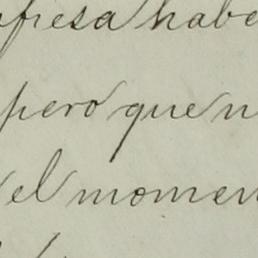 fiesa habe
pero que n
el momen